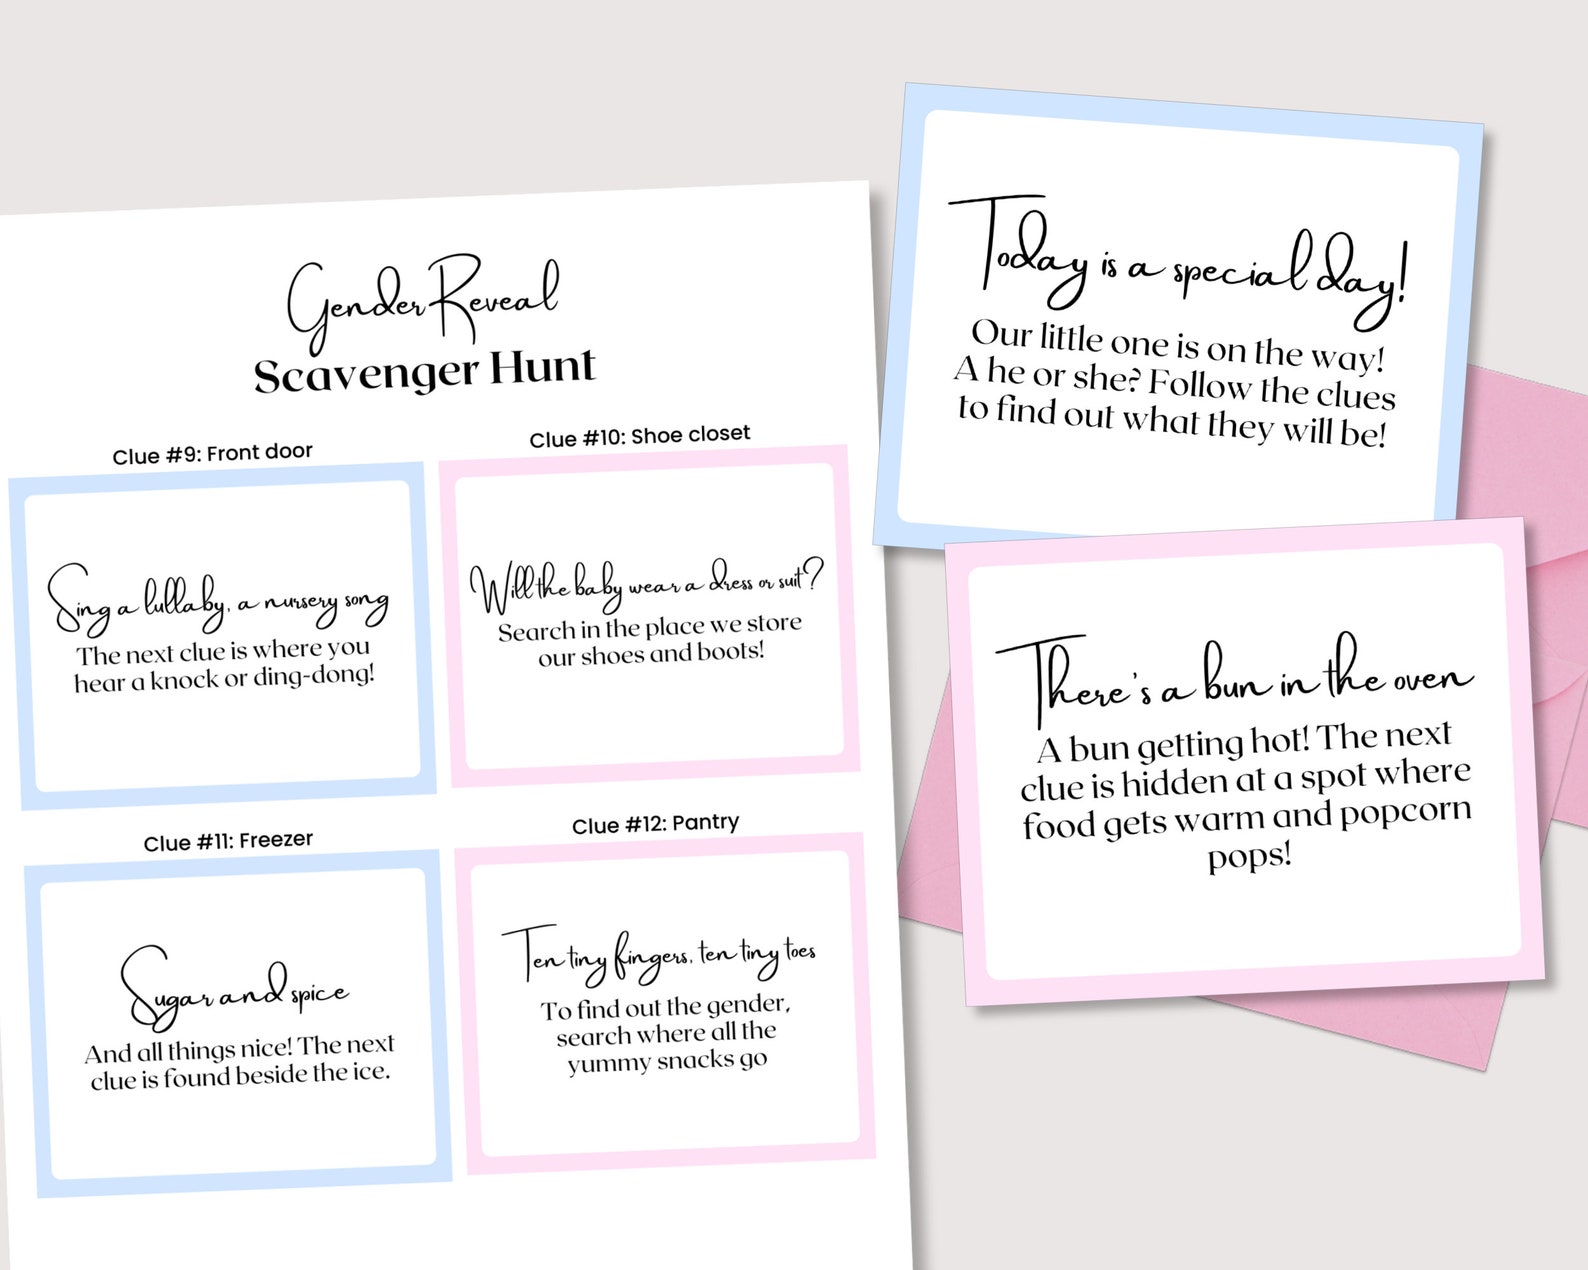 Gender Reveal
Scavenger Hunt
Clue #9: Front door
Sing a lullaby, a nursery song
The next clue is where you
hear a knock or ding-dong!
Clue #10: Shoe closet
Will the baby wear a dress or suit?
Search in the place we store
our shoes and boots!
Clue #11: Freezer
Sugar and spice
And all things nice! The next
clue is found beside the ice.
Clue #12: Pantry
Ten tiny fingers, ten tiny toes
To find out the gender,
search where all the
yummy snacks go
Today is a special day!
Our little one is on the way!
A he or she? Follow the clues
to find out what they will be!
There's a bun in the oven
A bun getting hot! The next
clue is hidden at a spot where
food gets warm and popcorn
pops!